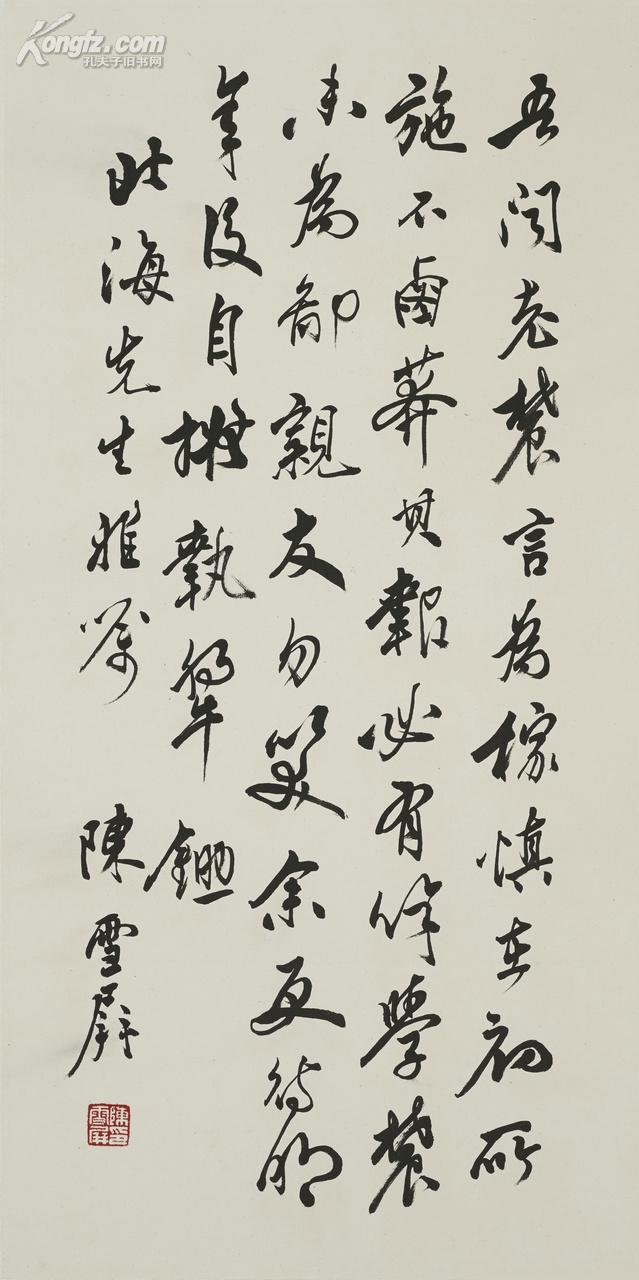 Kongfz.com
孔夫子旧书网
吾聞老農言為稼慎在初所
施不鹵莽其報必有餘學農
未為鄙親友勿笑余更待明
年後自擬執犂鋤
北海先生雅囑
陳雪屏
陳印雪屏